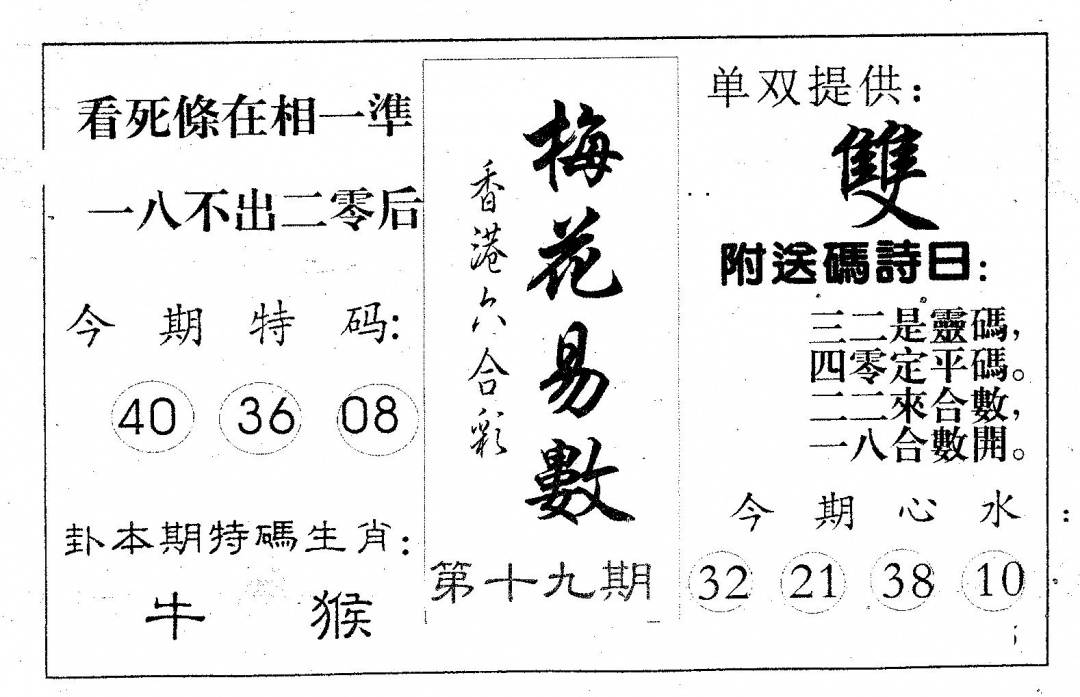 看死條在相一準
一八不出二零后
今期特码:
40 36 08
卦本期特碼生肖:
牛 猴
香港六合彩
梅花易數
第十九期
单双提供:
雙
附送碼詩曰:
三二是靈碼,
四零定平碼。
二二來合數,
一八合數開。
今期心水:
32 21 38 10